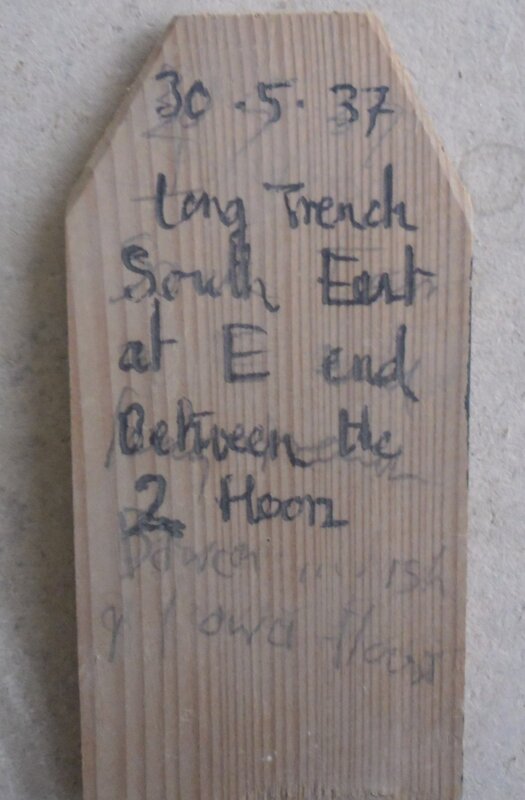 30.5.37
Long Trench
South East
at E end
Between the
2 Floors
floor